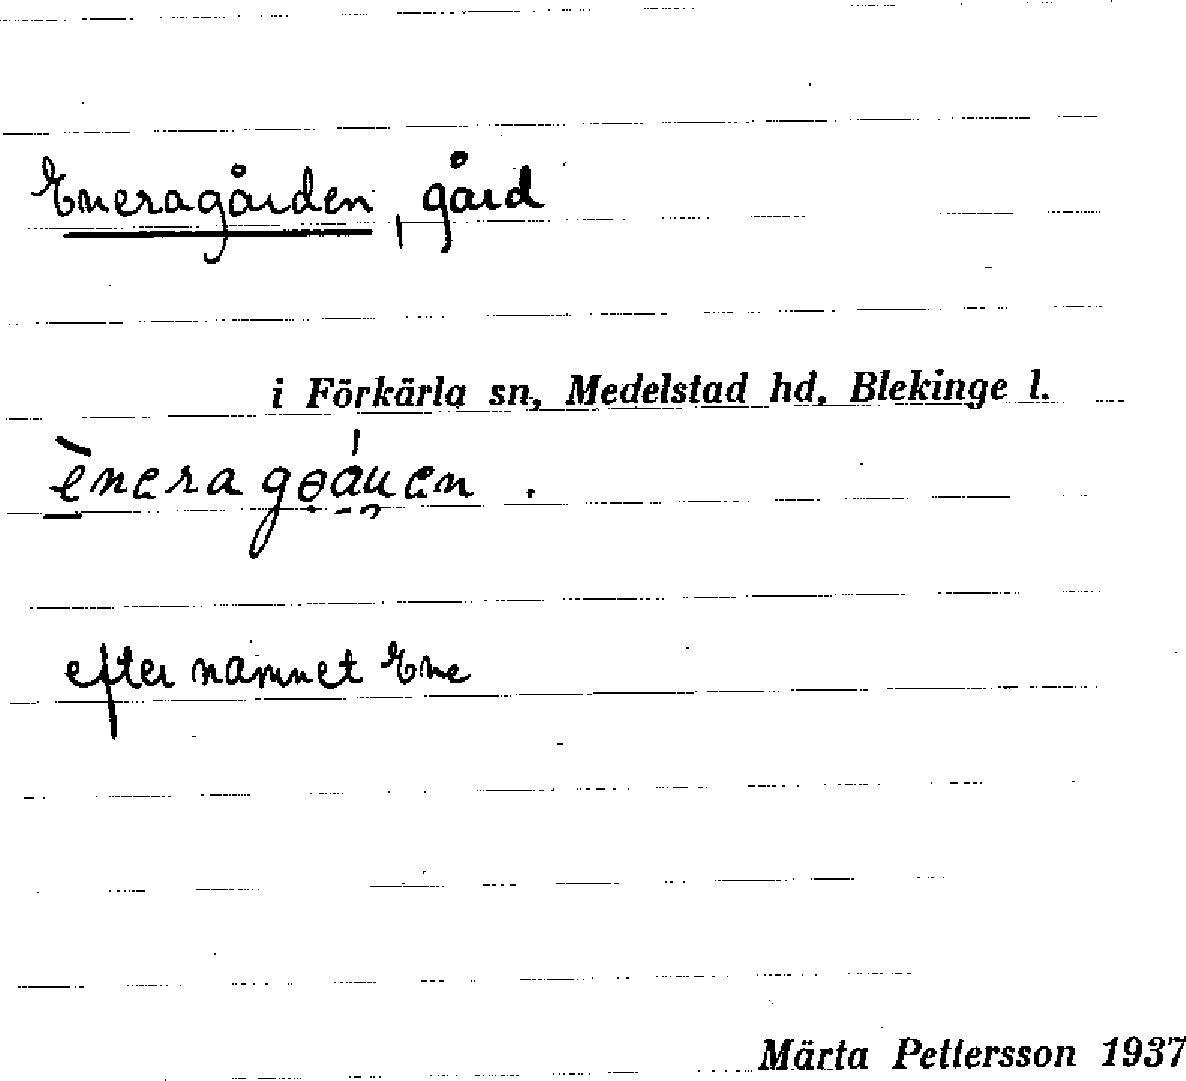 Eneragården, gård
i Förkärla sn, Medelstad hd, Blekinge l.
efter namnet Ene
Märta Pettersson 1937